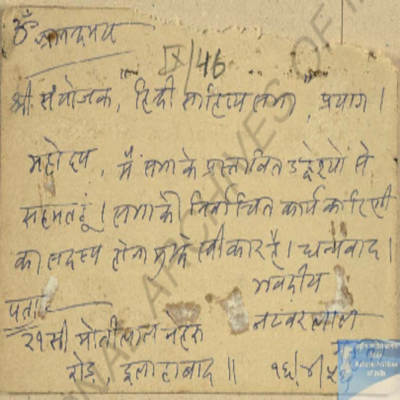 ॐ
IX/46
श्री संयोजक, "हिंदी साहित्य सभा", प्रयाग।
महोदय, मैं सभा के प्रस्तावित उद्देश्यों से
सहमत हूं। सभा की निर्वाचित कार्यकारिणी
का सदस्य होना मुझे स्वीकार है। धन्यवाद।
भवदीय
नटवरलाल
पता:
२१सी मोतीलाल नेहरू
रोड, इलाहाबाद॥